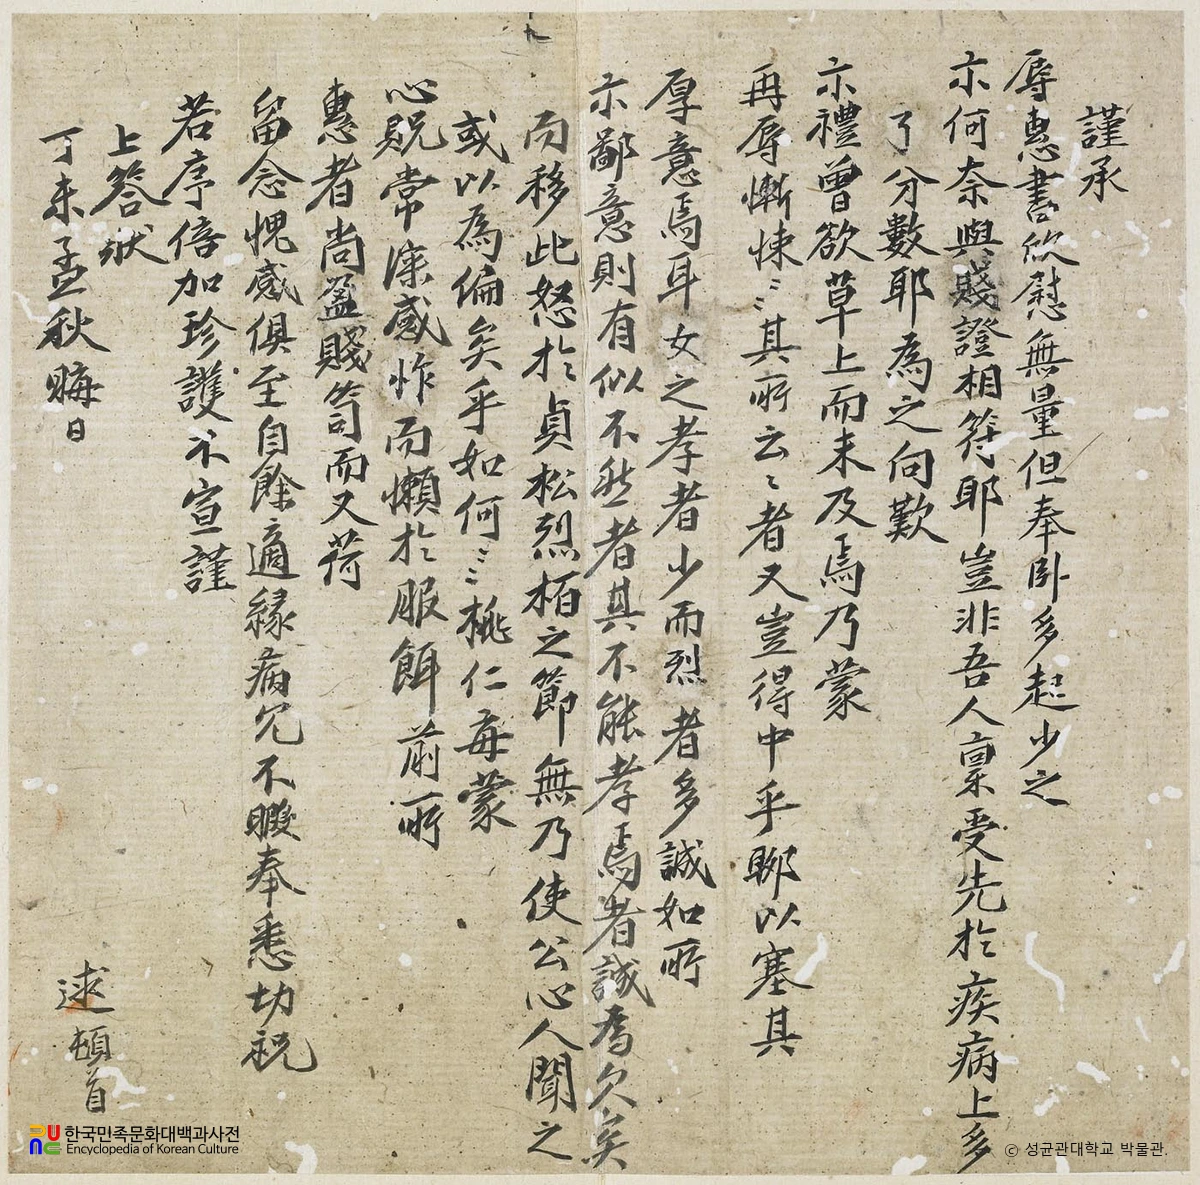 謹承
辱惠書欣慰無量但奉卧多起少之
示何奈與賤證相符耶豈非吾人稟受先於疾病上多
了分數耶為之向歎
示禮曾欲草上而未及焉乃蒙
再辱慚悚〻〻其所云〻者又豈得中乎聊以塞其
厚意焉耳女之孝者少而烈者多誠如所
示鄙意則有似不然者其不能孝焉者誠為欠矣
而移此怒於貞松烈栢之節無乃使公心人聞之
或以為偏矣乎如何〻〻桃仁每蒙
心貺常深感怍而懶於服餌前所
惠者尚盈賤笥而又荷
留念愧感俱至自餘適緣病冗不暇奉悉切祝
若序倍加珍護不宣謹
上答狀
丁未孟秋晦日
逑頓首
한국민족문화대백과사전
Encyclopedia of Korean Culture
© 성균관대학교 박물관.